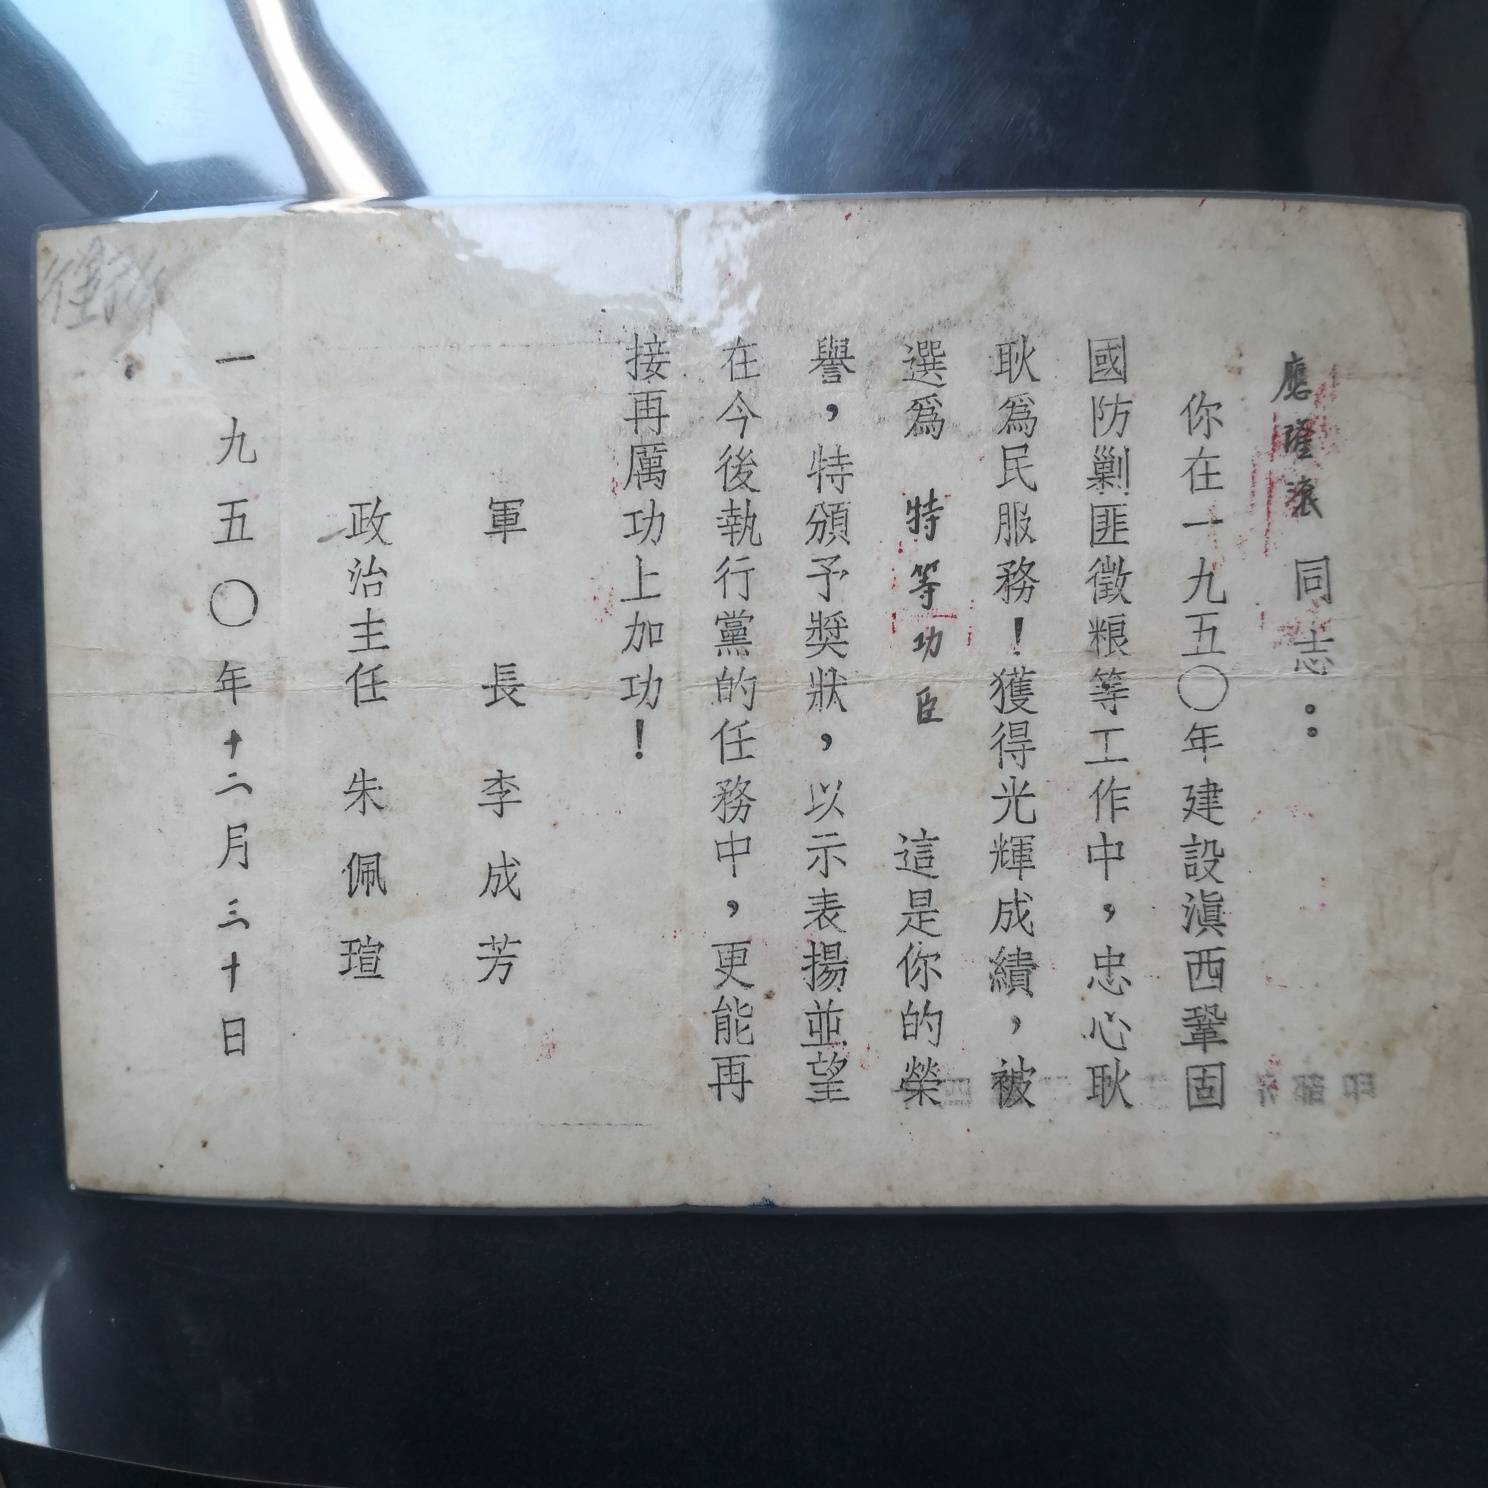 應瓘滾 同志：
你在一九五〇年建設滇西鞏固
國防剿匪徵粮等工作中，忠心耿
耿爲民服務！獲得光輝成績，被
選爲 特等功臣 這是你的榮
譽，特頒予奬狀，以示表揚並望
在今後執行黨的任務中，更能再
接再厲功上加功！
軍 長 李成芳
政治主任 朱佩瑄
一九五〇年十二月三十日